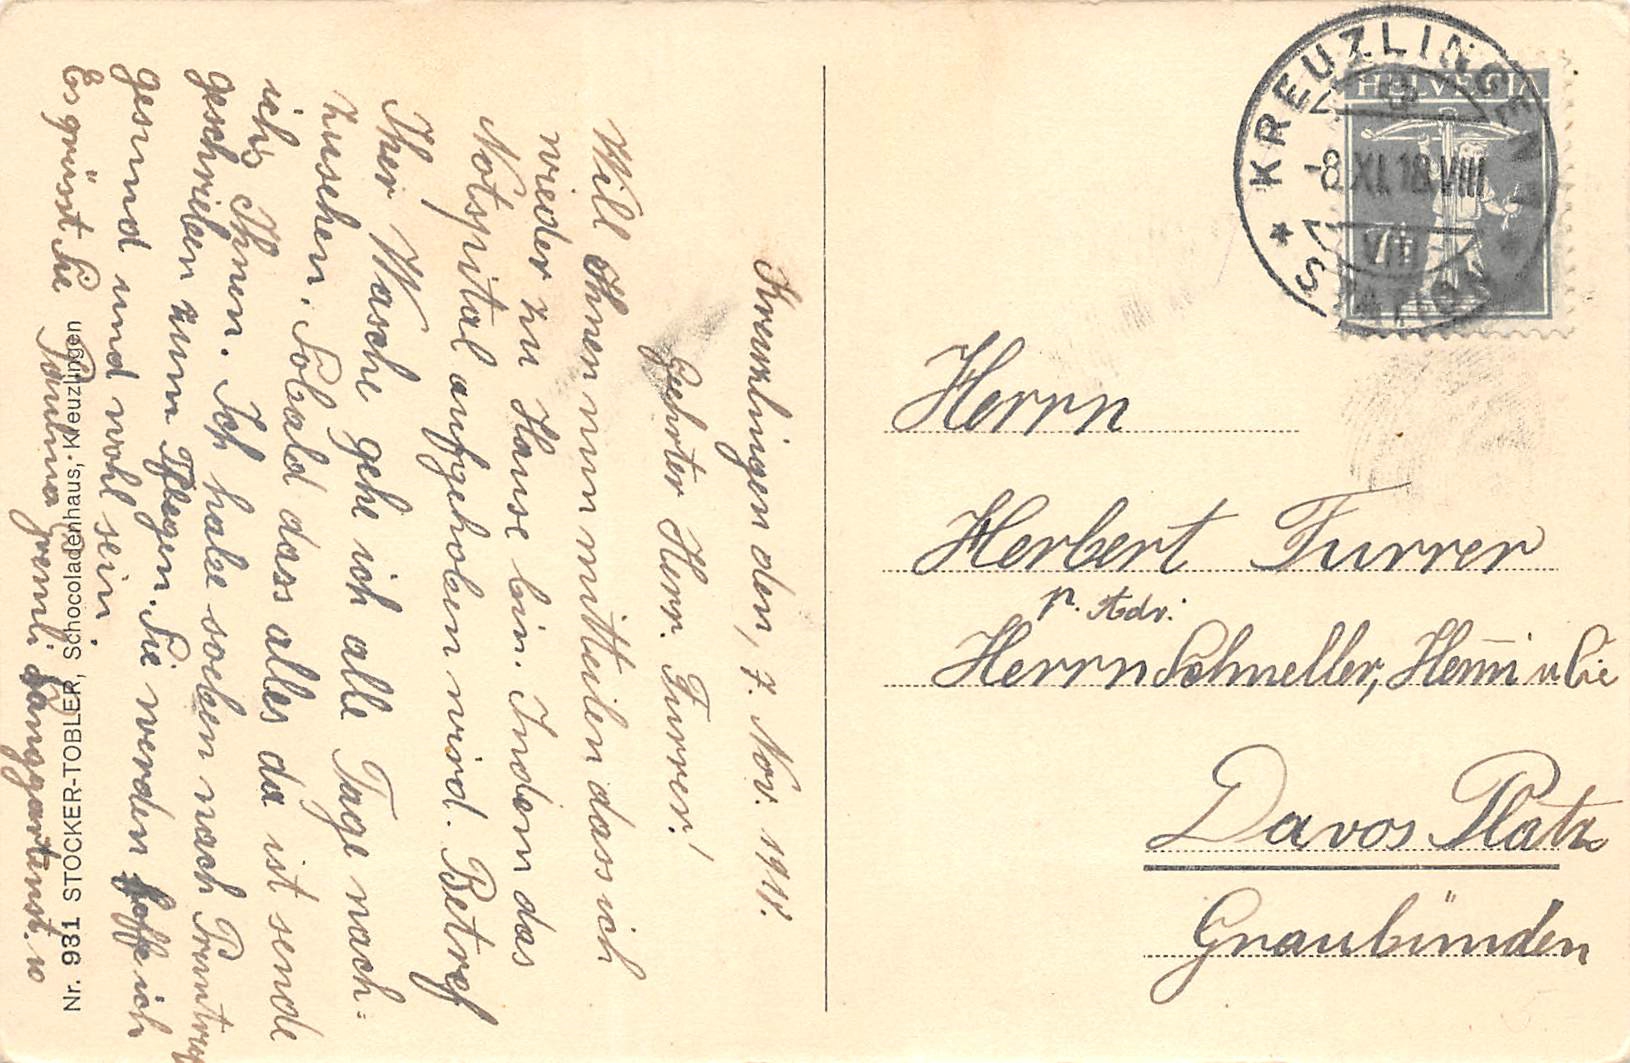 Kreuzlingen den, 7. Nov. 1918.
Geehrter Herr. Furrer!
Will Ihnen nun mitteilen dass ich
wieder zu Hause bin. Indem das
Notspital aufgehoben wird. Betref
Iher Wasche gehe ich alle Tage nach=
zusehen. Sobald dass alles da ist sende
ichs Ihnen. Ich habe soeben nach Pruntrup
geschrieben zum Pflegen. Sie werden hoffe ich
gesund und wohl sein.
Es grüsst Sie Paulina Gremli Langgartenst. 10
Nr. 931 STOCKER-TOBLER, Schocoladenhaus, Kreuzlingen
KREUZLINGEN 1
-8.XI.18.VIII
VIII
STATION
HELVETIA
7½
Herrn
Herbert Furrer
p. Adr.
Herrn Schneller, Hemi u Cie
Davos Platz
Graubünden